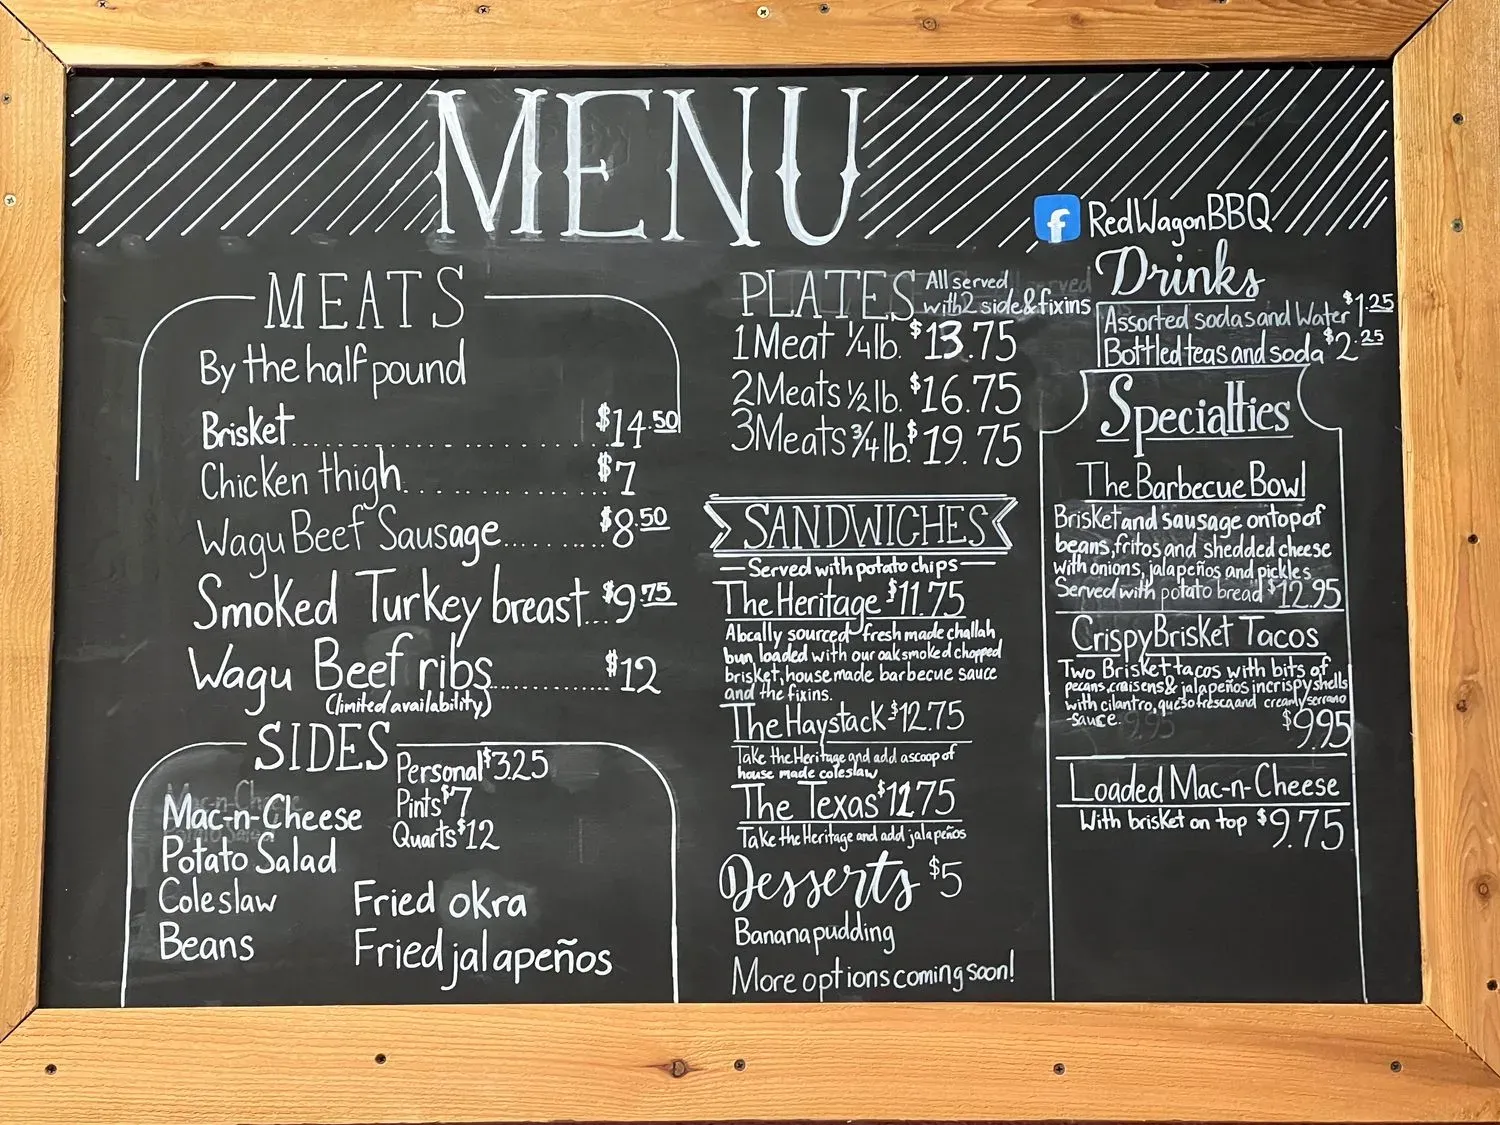 MENU
RedWagonBBQ
MEATS
By the half pound
Brisket $14.50
Chicken thigh $7
Wagu Beef Sausage $8.50
Smoked Turkey breast $9.75
Wagu Beef ribs $12
(limited availability)
SIDES
Personal $3.25
Pints $7
Quarts $12
Mac-n-Cheese
Potato Salad
Coleslaw
Beans
Fried okra
Fried jalapeños
PLATES
All served
with 2 side & fixins
1 Meat 1/4 lb. $13.75
2 Meats 1/2 lb. $16.75
3 Meats 3/4 lb. $19.75
SANDWICHES
Served with potato chips
The Heritage $11.75
A locally sourced fresh made challah
bun, loaded with our oak smoked chopped
brisket, house made barbecue sauce
and the fixins.
The Haystack $12.75
Take the Heritage and add a scoop of
house made coleslaw
The Texas $11.75
Take the Heritage and add jalapeños
Desserts $5
Banana pudding
More options coming soon!
Drinks
Assorted sodas and Water $1.25
Bottled teas and soda $2.25
Specialties
The Barbecue Bowl
Brisket and sausage on top of
beans, fritos and shedded cheese
with onions, jalapeños and pickles
Served with potato bread $12.95
Crispy Brisket Tacos
Two Brisket tacos with bits of
pecans, craisens & jalapeños in crispy shells
with cilantro, queso fresca and creamy serrano
-sauce. $9.95
Loaded Mac-n-Cheese
With brisket on top $9.75